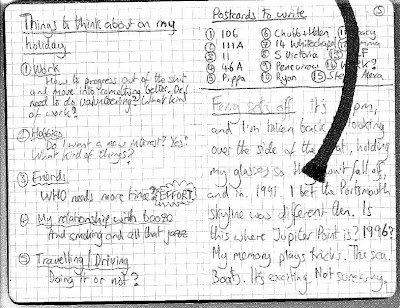 Things to think about on my
holiday
① Work
How to progress out of the
and move into something better. Do I
need to do volunteering? What kind
of work?
② Hobbies
Do I want a new interest? Yes?
What kind of things?
③ Friends
WHO needs more time? EFFORT.
④ My relationship with booze
And smoking and all that jazz
⑤ Travelling / Driving
Doing it or not?
Postcards to write
① 106 ⑥ Chubb + Helen
② 111A ⑦ 14 Whitechapel
③ ⑧ 5 Victoria
④ 46A ⑨ Pencurrow
⑤ Pippa ⑩ Ryan ⑮ Alexa
Ferry sets off. It's pm,
and I'm taken back looking
over the side of the boat, holding
my glasses so they don't fall off,
and in 1991. I bet the Portsmouth
skyline was different then. Is
this where Jupiter Point is? 1996?
My memory plays tricks. The sea.
Boats. It's exciting. Not